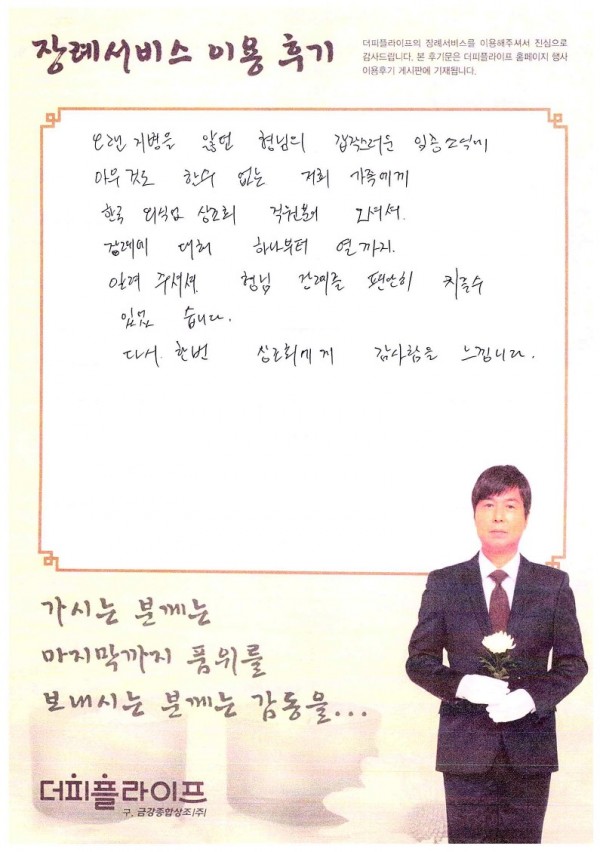 장례서비스 이용 후기
더피플라이프의 장례서비스를 이용해주셔서 진심으로
감사드립니다. 본 후기문은 더피플라이프 홈페이지 행사
이용후기 게시판에 기재됩니다.
오랜 지병을 앓던 형님의 갑작스러운 임종소식에
아무것도 할수 없는 저희 가족에게
한국 상조회 직원분이 오셔서.
장례에 대해 하나부터 열까지.
알려 주셔서. 형님 장례를 편안히 치를수
있었 습니다.
다시. 한번 상조회에게 감사함을 느낍니다.
가시는 분께는
마지막까지 품위를
보내시는 분께는 감동을...
더피플라이프
구. 금강종합상조(주)